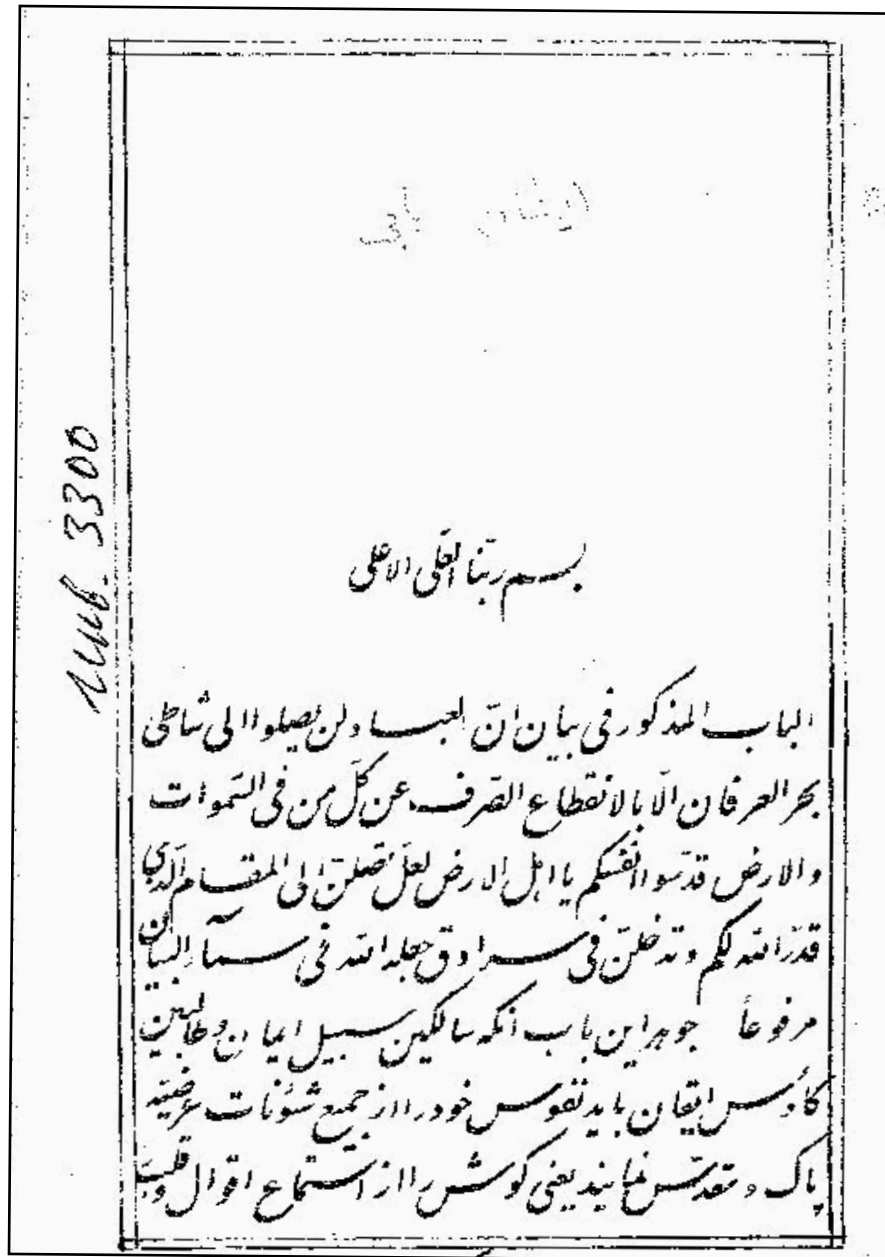 بسم ربنا العلی الاعلی
الباب المذکور فی بیان ان العباد لن یصلوا الی شاطئ
بحر العرفان الّا بالانقطاع الصّرف عن کلّ من فی السّموات
والارض قدّسوا انفسکم یا اهل الارض لعلّ تصلنّ الی المقام الّذی
قدّر الله لکم و تدخلنّ فی سرادق جعله الله فی سمآء البیان
مرفوعاً جوهر این باب آنکه سالکین سبیل ایمان و طالبین
کأوس ایقان باید نفوس خود را از جمیع شئونات عرضیّه
پاک و مقدّس نمایند یعنی کوش را از استماع اقوال و قلب
Инв. 3300